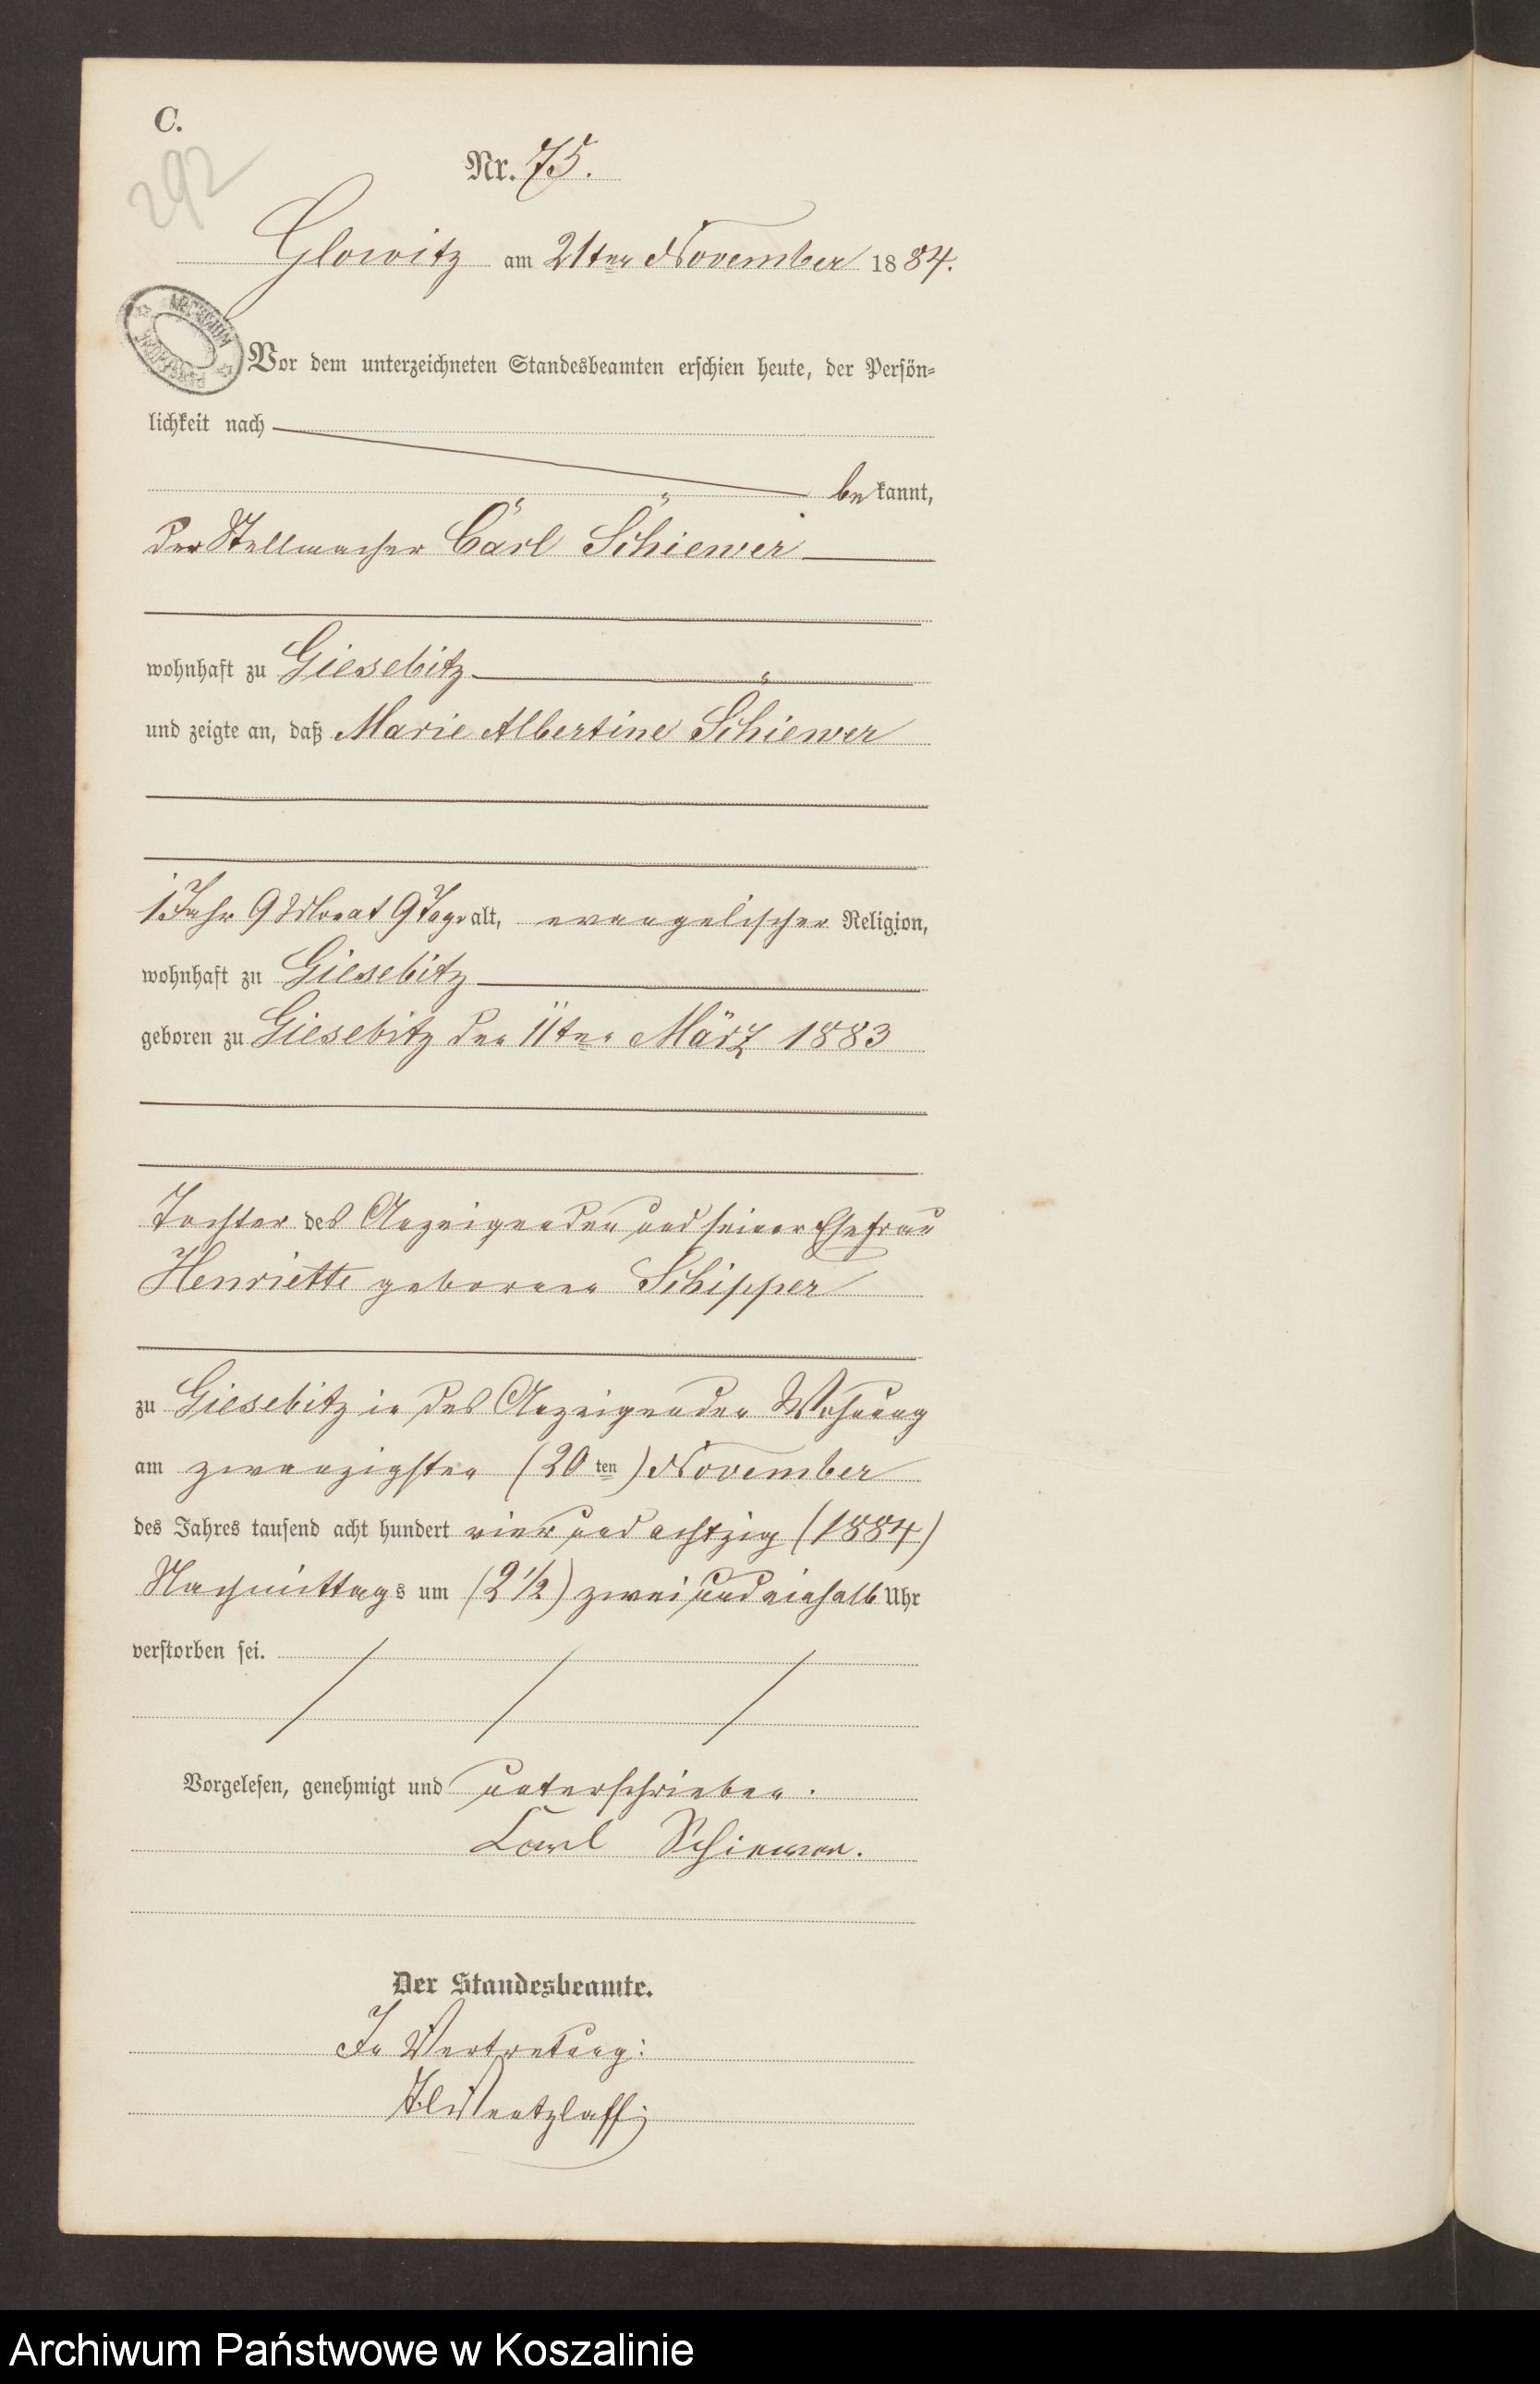 C.
292
Nr. 75.
Glowitz am 21ten November 1884.
ARCHIWUM
Vor dem unterzeichneten Standesbeamten erschien heute, der Persön-
lichkeit nach
bekannt,
der Stellmacher Carl Schiewer
wohnhaft zu Giesebitz
und zeigte an, daß Marie Albertine Schiewer
1 Jahr 9 Monat 9 Tage alt, evangelischer Religion,
wohnhaft zu Giesebitz
geboren zu Giesebitz den 11ten März 1883
Tochter des Anzeigenden und seiner Ehefrau
Henriette geborenen Schipper
zu Giesebitz in des Anzeigenden Wohnung
am zwanzigsten (20ten) November
des Jahres tausend acht hundert vier und achtzig (1884)
Nachmittags um (2 1/2) zwei und einhalb Uhr
verstorben sei.
Vorgelesen, genehmigt und unterschrieben.
Carl Schiewer.
Der Standesbeamte.
In Vertretung:
Wentzlaff
Archiwum Państwowe w Koszalinie